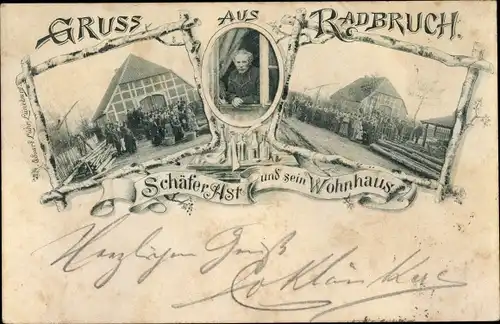 GRUSS AUS RADBRUCH.
Schäfer Ast und sein Wohnhaus.
Herzlichen Gruß